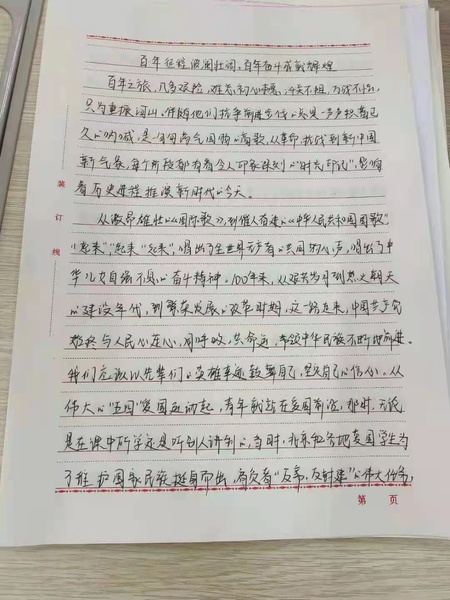 百年征程波澜壮阔,百年初心历久弥坚
百年之旅,几多艰险,难忘初心使命,
只为重振河山,伴随他们抗争前进步伐的总是一声声
久的呐喊,是一首首为国的高歌,从革命抗战到新中国
新气象,每个阶段都有着令人印象深刻的"时代印记",影响
着历史进程推演新时代的今天。
装订线
从激昂雄壮的《国际歌》,到催人奋进的《中华人民共和国国歌》
"起来","起来","起来",唱出了全世界无产者的共同的心声,唱出了中
华儿女自强不息的奋斗精神。100年来,从艰苦岁月到热火朝天
的建设年代,到繁荣发展的改革时期,这一路走来,中国共产党
始终与人民心连心,同呼吸,共命运,带领中华民族不断地前进。
我们应该以先辈们的英雄事迹鼓舞自己,坚定自己的信心。从
伟大的"五四"爱国运动起,青年就站在爱国前沿,那时,无论
是在课中所学还是听别人讲到的,当时,北京和各地爱国学生为
了维护国家民族挺身而出,肩负着"反帝,反封建"的伟大任务,
第 页